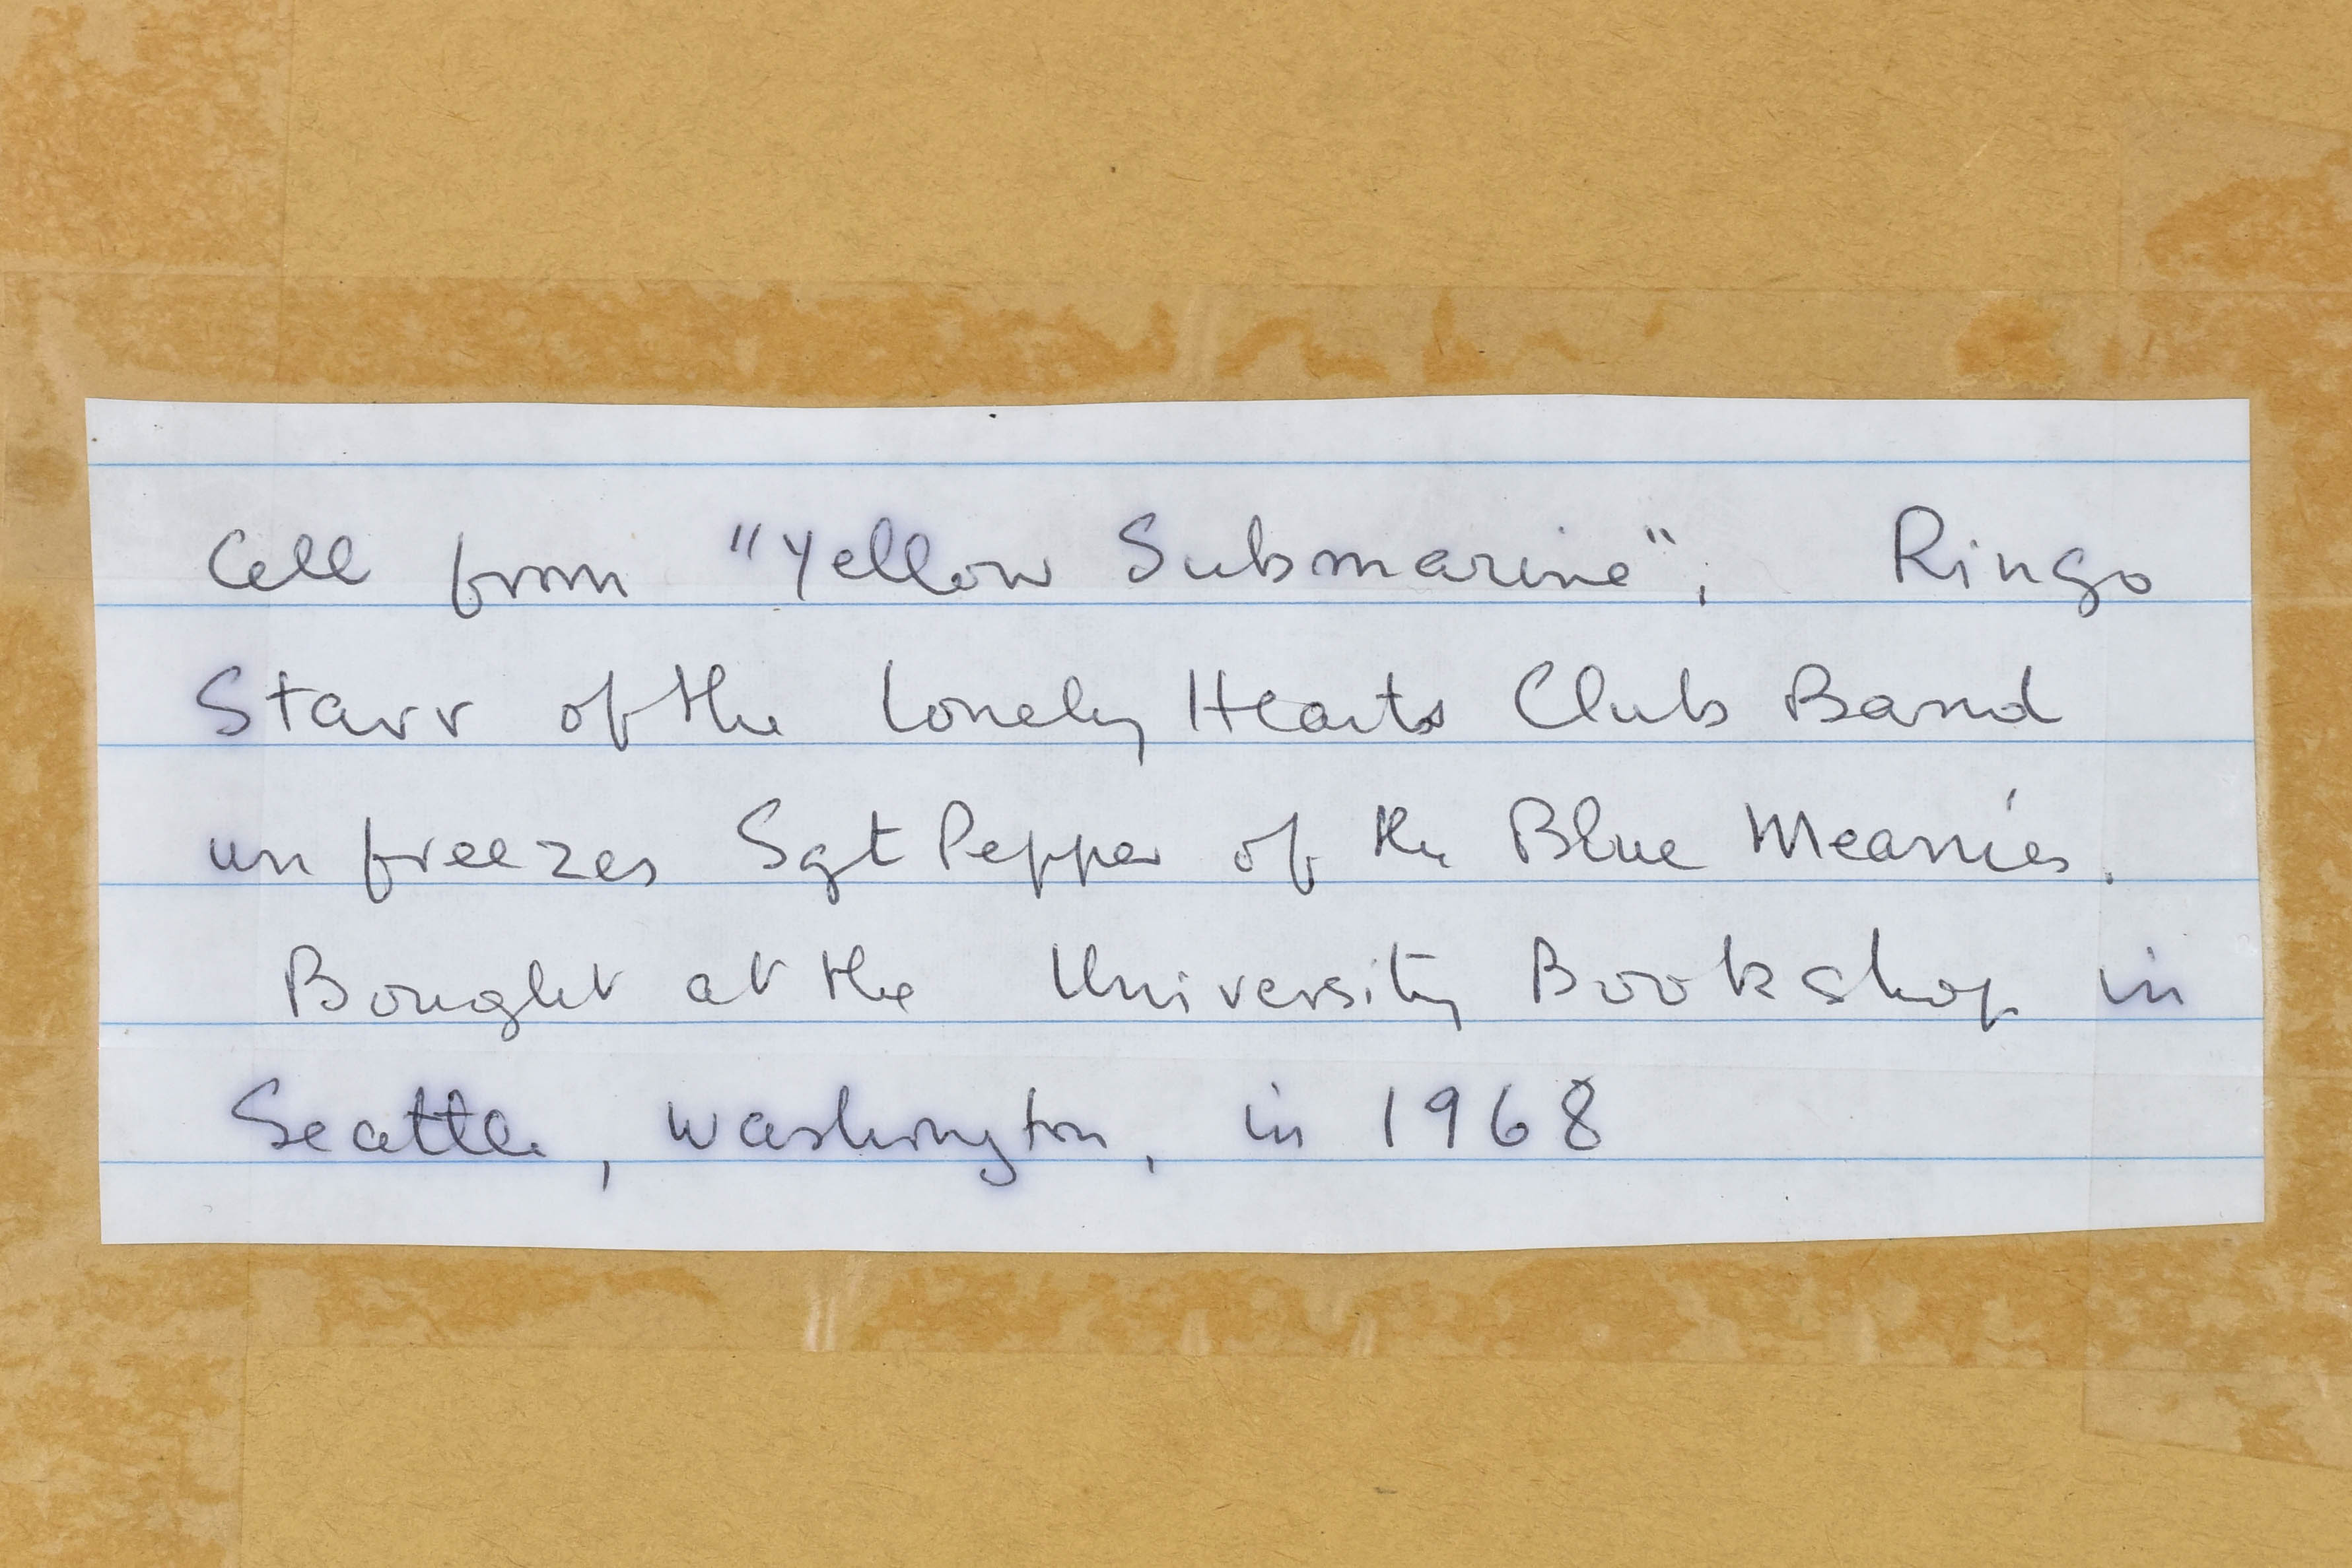 Cell from "Yellow Submarine", Ringo
Starr of the Lonely Hearts Club Band
unfreezes Sgt Pepper of the Blue Meanies.
Bought at the University Bookshop in
Seattle, Washington, in 1968